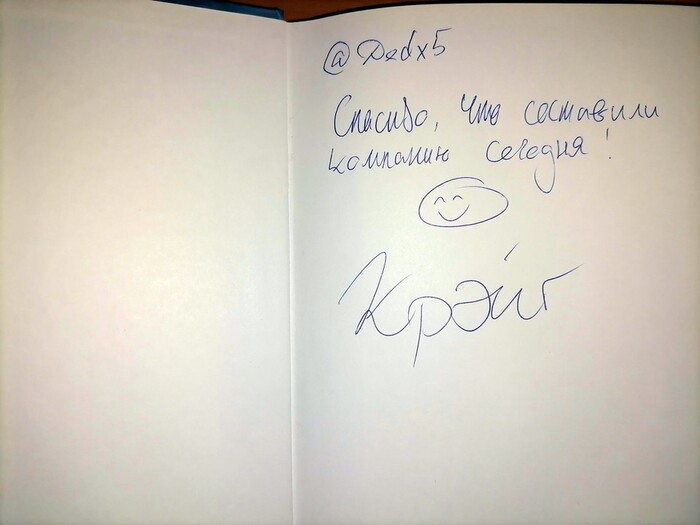 @Dedx5
Спасибо, что составили
компанию сегодня!
Крэйг